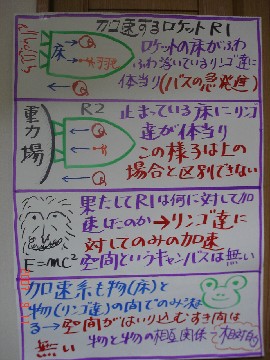 加速するロケットR1
床
羽
ロケットの床がふわ
ふわ浮いているリンゴ達に
体当り(バスの急発進)
重力場
R2
止まっている床にリンゴ
達が体当り
この様子は上の
場合と区別できない
E=mc²
果たしてR1は何に対して加
速したのか→リンゴ達に
対してのみの加速
空間というキャンバスは無い
加速系も物(床)と
物(リンゴ達)の間でのみ決ま
る→空間がはいりこむすき間は
無い
物と物の相互関係=相対的